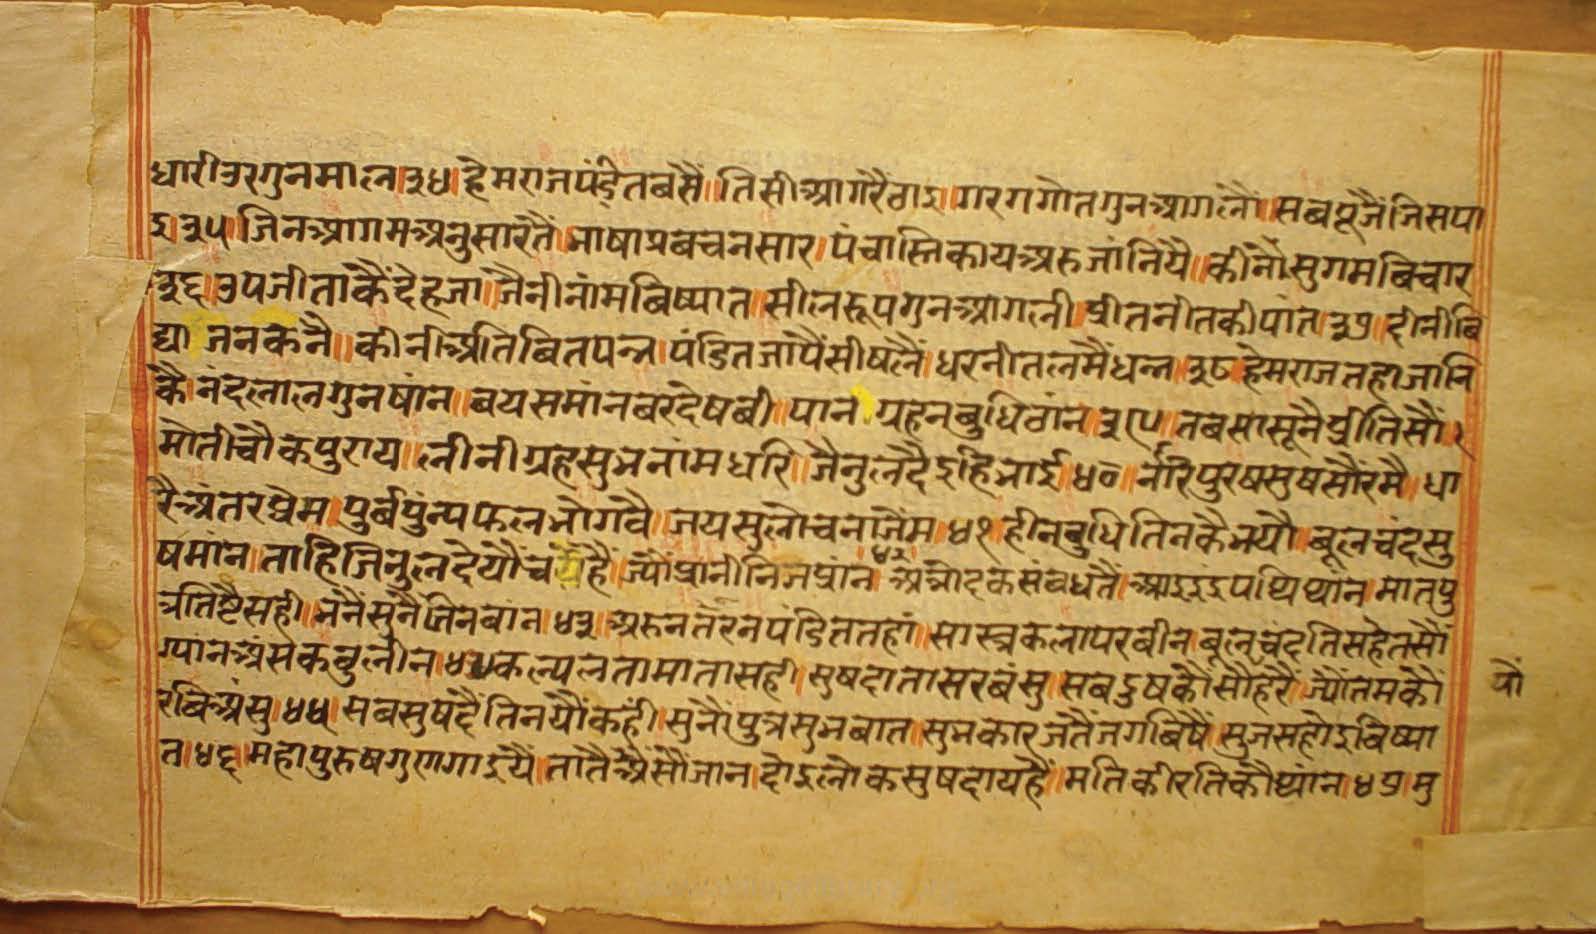 धारीउरगुनमाल।३४।हेमराजपंडितबसैं॥तिसीआगरैठाइ।गरगगोतगुनआगलौ॥सबपूजैंजिसपा
इ।३५।जिनआगमअनुसारतैं।भाषाप्रबचनसार।पंचास्तिकायअरुजांनियै॥कीनौंसुगमबिचार
३६।उपजीताकैंदेहजा॥जैनीनांमबिष्यात॥सीलरूपगुनआगली॥प्रीतनीतकीपांत।३७।दीनीबि
द्याजनकनैं॥कीनीअतिबितपन्न॥पंडितजापैंसीषलैं॥धरनीतलमैंधन्न।३८।हेमराजतहाजानि
कै॥नंदलालगुनषांन॥बयसमांनबरदेषबी॥पानयहनबुधिठांन।३९।तबसासूनैंप्रीतिसौं॥
मोतीचौकपुराय॥लीनीग्रहसुभनांमधरि॥जैनुलदैइहिभाई।४०॥नारिपुरषसुषसौंरमै॥धा
रैअंतरप्रेम॥पुर्बपुंन्यफलभोगवै॥जयसुलोचनाजैंम।४१।हीनबुधितिनकैभयौ॥बूलचंदसु
षमांन॥ताहिजिनुलदेयौंचयैहैं॥ज्यौंप्रानीनिजप्रांन।४२।अंन्नोदकसंबधतैं॥आइइंद्रपथिथांन।मातपु
त्रतिष्टैसही॥भनैंसुनैंजिनबांन।४३।अरुनतरनपंडिततहां॥सास्त्रकलापरबीन।बूलचंदतिसहेतसौं
ग्यांनअंसकबुलीन।४४।कल्पलतामातासही॥सुषदातासरबंसु॥सबदुषकौंसौहरैं॥ज्यौंतमकौं
यौं
रबिअंसु।४५।सबसुषदैंतिनयौंकही॥सुनौंपुत्रसुभबात॥सुभकारजतैंजगबिषैं॥सुजसहोइबिष्या
त।४६।महापुरुषगुणगाइयैं॥तातैंअैसौंजान॥दोइलोकसुषदायहैं॥मतिकीरतिकौथांन।४७।मु